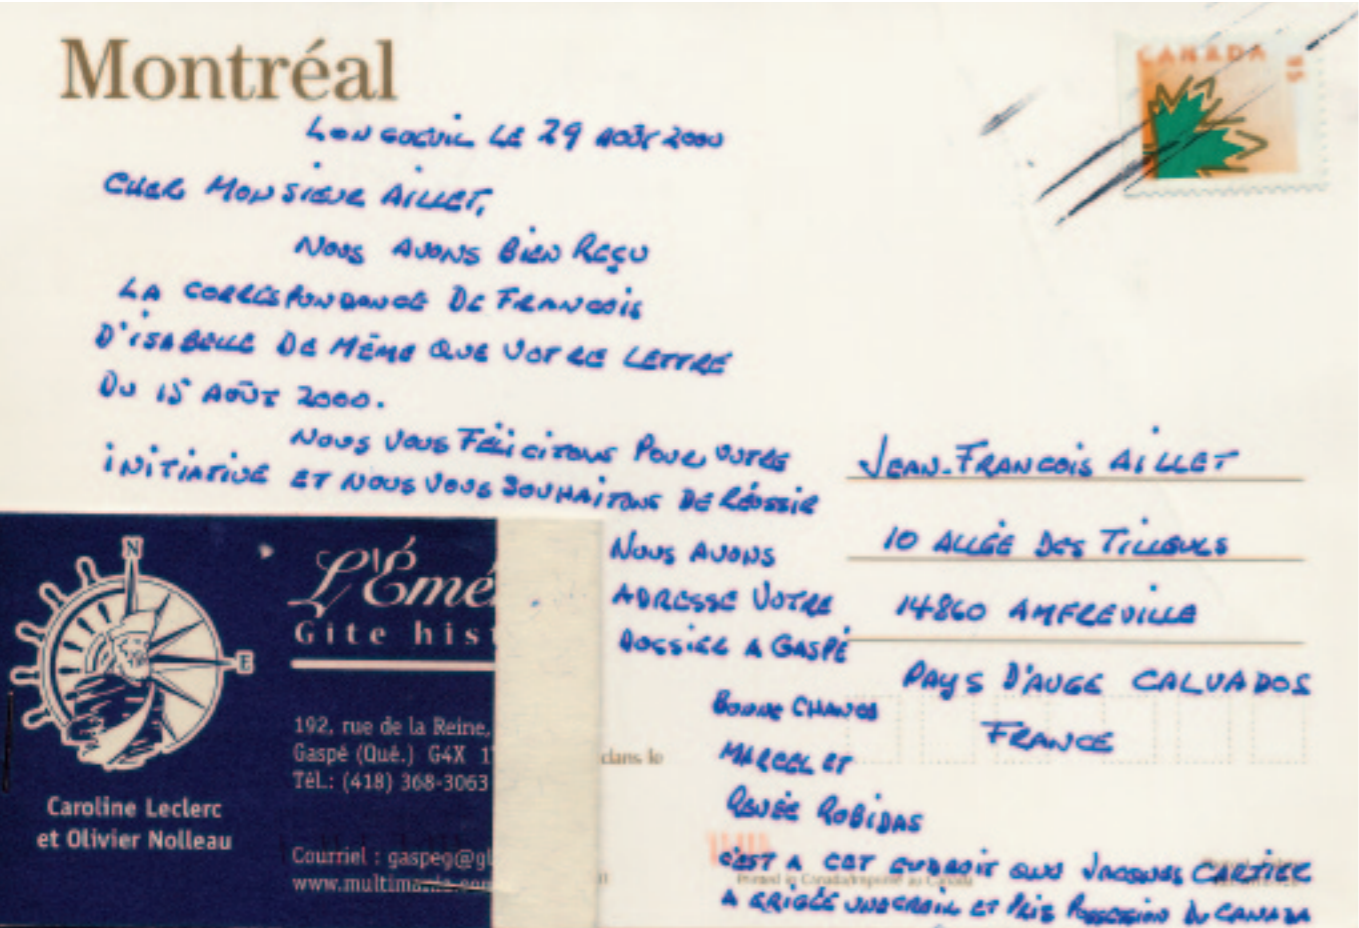 Montréal
CANADA
LONGUEUIL LE 29 AOÛT 2000
CHER MONSIEUR AILLET,
NOUS AVONS BIEN REÇU
LA CORRESPONDANCE DE FRANCOIS
D'ISABELLE DE MÊME QUE VOTRE LETTRE
DU 15 AOÛT 2000.
NOUS VOUS FÉLICITONS POUR VOTRE
INITIATIVE ET NOUS VOUS SOUHAITONS DE RÉUSSIR
NOUS AVONS
ADRESSE VOTRE
DOSSIER A GASPÉ
BONNE CHANCE
MARCEL ET
RENÉE ROBIDAS
C'EST A CET ENDROIT QUE JACQUES CARTIER
A ERIGÉE UNE CROIX ET PRIS POSSESSION DU CANADA
JEAN-FRANCOIS AILLET
10 ALLÉE DES TILLEULS
14860 AMFREVILLE
PAYS D'AUGE CALVADOS
FRANCE
N
E
L'Émé
Gîte hist
192, rue de la Reine,
Gaspé (Qué.) G4X 1
Tél.: (418) 368-3063
Caroline Leclerc
et Olivier Nolleau
Courriel : gaspeg@gl
www.multimania.com
dans le
Printed in Canada/Imprimé au Canada